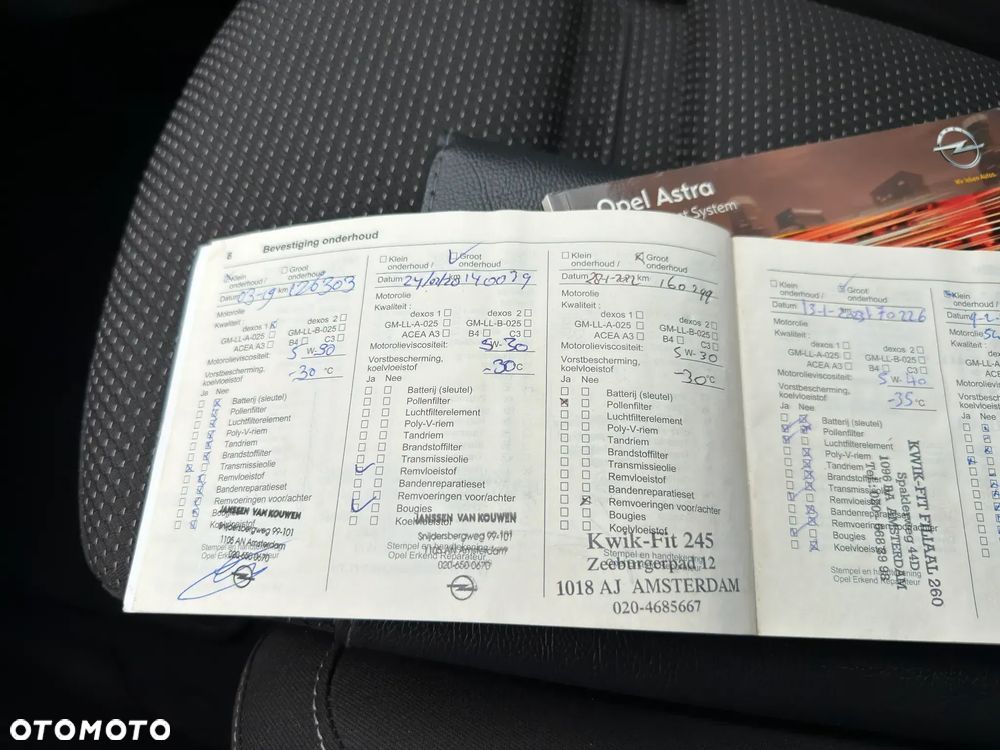 Opel Astra
System
Wir leben Autos.
8 Bevestiging onderhoud
Klein onderhoud / Groot onderhoud
Datum 03-19 km 126303
Motorolie
Kwaliteit:
dexos 1 dexos 2
GM-LL-A-025 GM-LL-B-025
ACEA A3 B4 C3
Motorolieviscositeit: 5 W-30
Vorstbescherming, koelvloeistof -30 °C
Ja Nee
Batterij (sleutel)
Pollenfilter
Luchtfilterelement
Poly-V-riem
Tandriem
Brandstoffilter
Transmissieolie
Remvloeistof
Bandenreparatieset
Remvoeringen voor/achter
Bougies
Koelvloeistof
JANSSEN VAN KOUWEN
Snijdersbergweg 99-101
1105 AN Amsterdam
020-650 0670
Stempel en handtekening
Opel Erkend Reparateur
Klein onderhoud / Groot onderhoud
Datum 24/01/20 km 140039
Motorolie
Kwaliteit:
dexos 1 dexos 2
GM-LL-A-025 GM-LL-B-025
ACEA A3 B4 C3
Motorolieviscositeit: 5W-30
Vorstbescherming, koelvloeistof -30°C
Ja Nee
Batterij (sleutel)
Pollenfilter
Luchtfilterelement
Poly-V-riem
Tandriem
Brandstoffilter
Transmissieolie
Remvloeistof
Bandenreparatieset
Remvoeringen voor/achter
Bougies
Koelvloeistof
JANSSEN VAN KOUWEN
Snijdersbergweg 99-101
1105 AN Amsterdam
020-650 0670
Stempel en handtekening
Opel Erkend Reparateur
Klein onderhoud / Groot onderhoud
Datum km 160299
Motorolie
Kwaliteit:
dexos 1 dexos 2
GM-LL-A-025 GM-LL-B-025
ACEA A3 B4 C3
Motorolieviscositeit: 5 W-30
Vorstbescherming, koelvloeistof -30 °C
Ja Nee
Batterij (sleutel)
Pollenfilter
Luchtfilterelement
Poly-V-riem
Tandriem
Brandstoffilter
Transmissieolie
Remvloeistof
Bandenreparatieset
Remvoeringen voor/achter
Bougies
Koelvloeistof
Stempel en handtekening
Kwik-Fit 245
Zeeburgerpad 12
1018 AJ AMSTERDAM
020-4685667
Klein onderhoud / Groot onderhoud
Datum 13-1-2023 170226
Motorolie
Kwaliteit:
dexos 1 dexos 2
GM-LL-A-025 GM-LL-B-025
ACEA A3 B4 C3
Motorolieviscositeit: 5 W-40
Vorstbescherming, koelvloeistof -35 °C
Ja Nee
Batterij (sleutel)
Pollenfilter
Luchtfilterelement
Poly-V-riem
Tandriem
Brandstoffilter
Transmissieolie
Remvloeistof
Bandenreparatieset
Remvoeringen voor/achter
Bougies
Koelvloeistof
Stempel en handtekening
Opel Erkend Reparateur
KWIK-FIT FILIAAL 260
Spaklerweg 44D
1096 BA AMSTERDAM
Klein
onderhoud /
Datum 9-2-
Motorolie
Kwaliteit:
GM-LL-A-025
ACEA A3
Motorolieviscositeit
Vorstbescherming,
koelvloeistof
Ja Nee
OTOMOTO